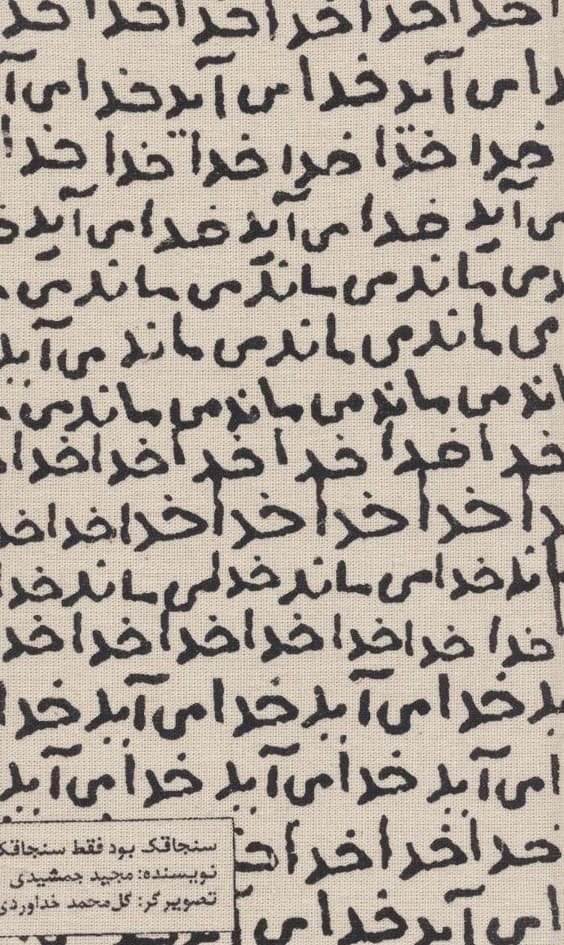 خدا خدا خدا خدا خدا خدا
می آید خدا می آید خدا می آ
خدا خدا خدا خدا خدا خدا
می آید خدا می آید خدا می آید
می ماند می ماند می ماند می
می ماند می ماند می ماند می آید
ماند می ماند می ماند می ماند می
خدا خدا خدا خدا خدا خدا
خدا خدا خدا خدا خدا
ماند خدا می ماند خدا می ماند خدا
خدا خدا خدا خدا خدا خدا خد
ید خدا می آید خدا می آید خدا
ا می آید خدا می آید خدا می آید
خدا خدا خدا خد
ا می آید خدا می
سنجاقک بود فقط سنجاقک
نویسنده: مجید جمشیدی
تصویرگر: گل‌محمد خداوردی